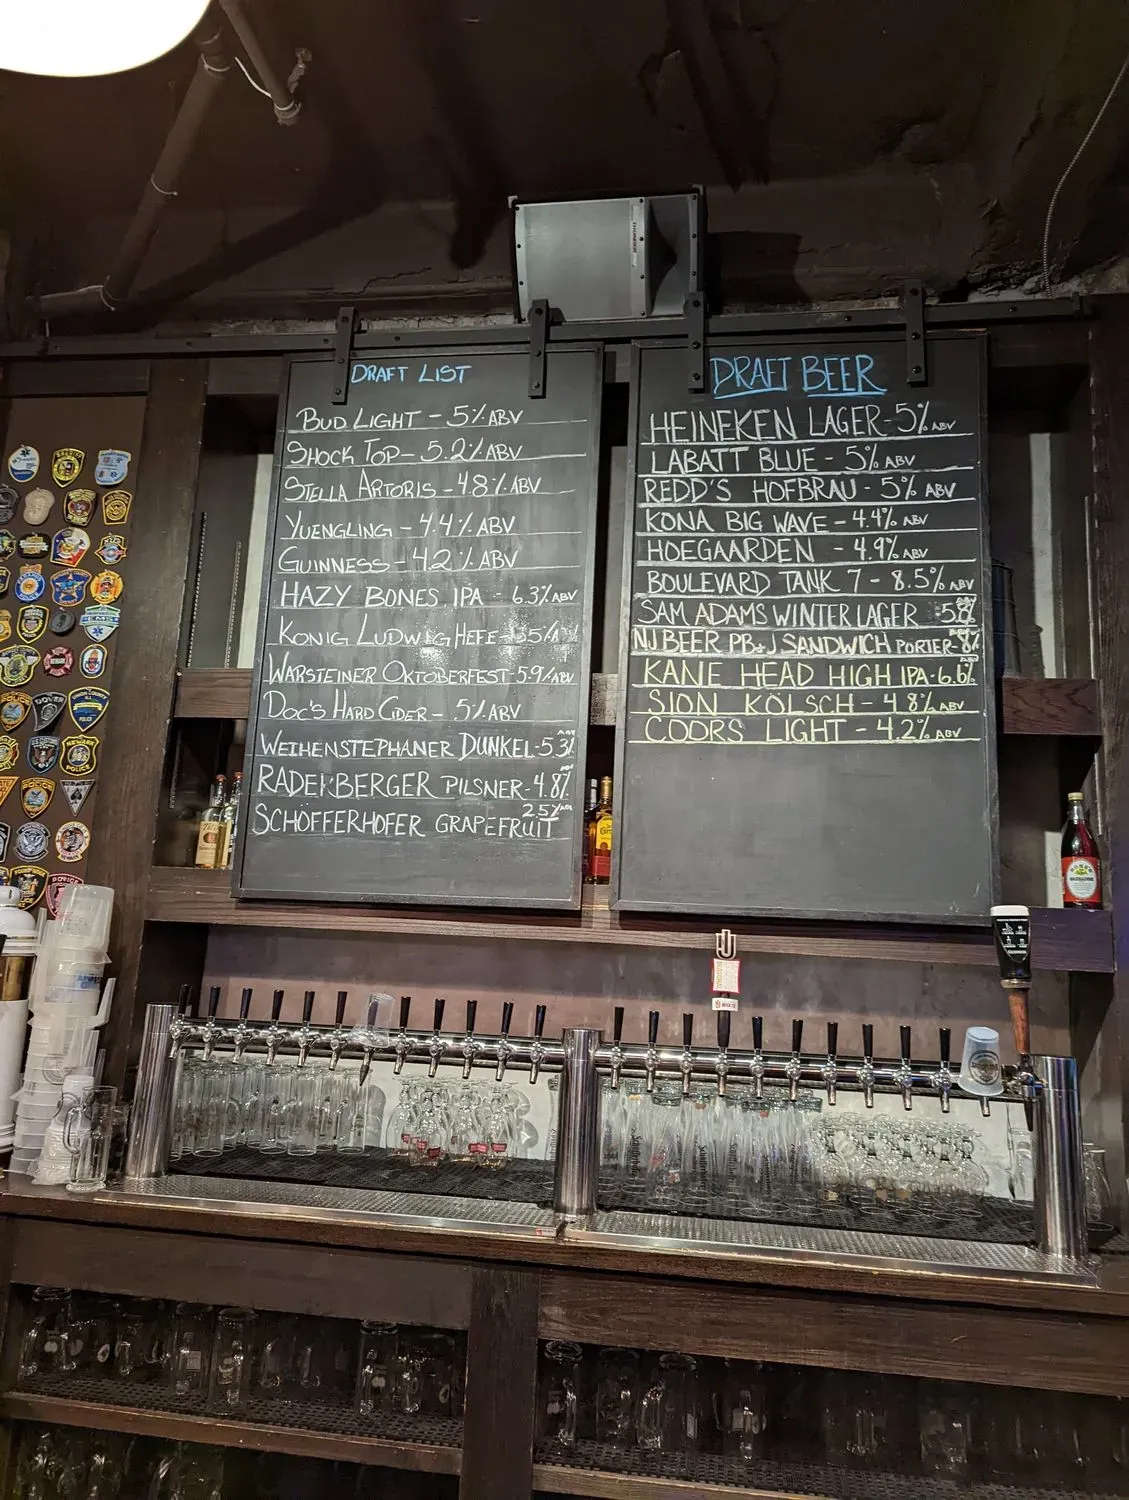 DRAFT LIST
BUD LIGHT - 5% ABV
SHOCK TOP - 5.2% ABV
STELLA ARTORIS - 4.8% ABV
YUENGLING - 4.4% ABV
GUINNESS - 4.2% ABV
HAZY BONES IPA - 6.3% ABV
KONIG LUDWIG HEFE - 5.5% ABV
WARSTEINER OKTOBERFEST - 5.9% ABV
DOC'S HARD CIDER - 5% ABV
WEIHENSTEPHANER DUNKEL - 5.3% ABV
RADEKBERGER PILSNER - 4.8% ABV
SCHÖFFERHOFER GRAPEFRUIT 2.5% ABV
DRAFT BEER
HEINEKEN LAGER - 5% ABV
LABATT BLUE - 5% ABV
REDD'S HOFBRAU - 5% ABV
KONA BIG WAVE - 4.4% ABV
HOEGAARDEN - 4.9% ABV
BOULEVARD TANK 7 - 8.5% ABV
SAM ADAMS WINTER LAGER ABV
NJ BEER PB&J SANDWICH PORTER - 8% ABV
KANE HEAD HIGH IPA - 6.6% ABV
SION KÖLSCH - 4.8% ABV
COORS LIGHT - 4.2% ABV